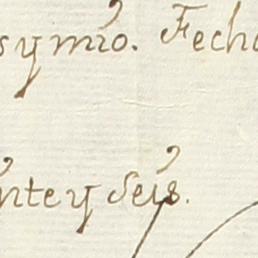 s y mío. Fecho
nte y seís.